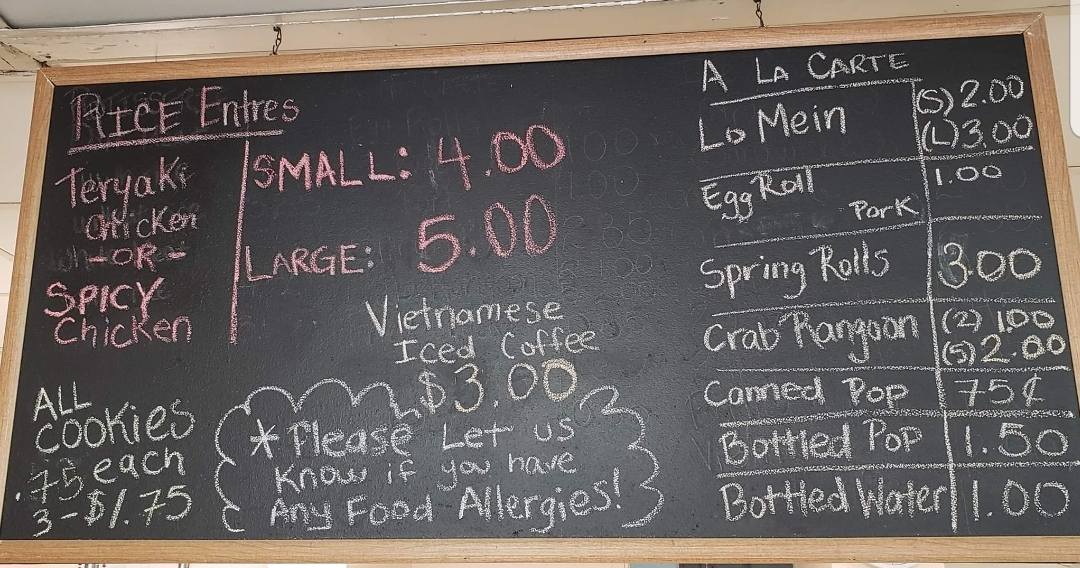 RICE Entres
Teryaki
Chicken
-OR-
SPICY
Chicken
SMALL: 4.00
LARGE: 5.00
Vietnamese
Iced Coffee
$3.00
ALL
COOKIES
.75 each
3-$1.75
* Please Let us
Know if you have
Any Food Allergies!
A LA CARTE
Lo Mein (S) 2.00
(L) 3.00
Egg Roll 1.00
Pork
Spring Rolls 3.00
Crab Rangoon (2) 1.00
(5) 2.00
Canned Pop 75¢
Bottled Pop 1.50
Bottled Water 1.00